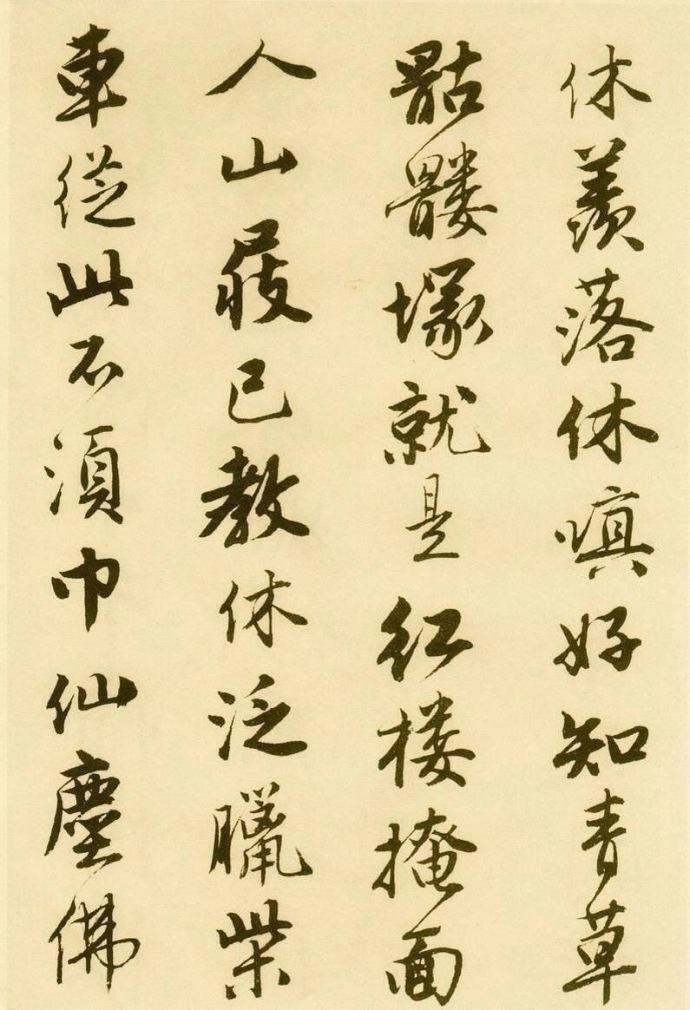 休羨落休嗔好知青草
骷髏塚就是紅樓掩面
人山屐已教休泛臘柴
車從此不須巾仙塵佛